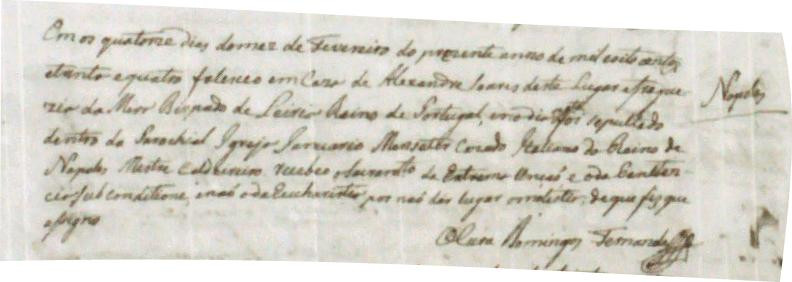 Em os quatorze dias do mez de Fevereiro do prezente anno de mil oito centos
etrinta e quatro faleceo em Caza de Alexandre Soares deste Lugar efregue
zia da Marr Bispado de Leiria Reino de Portugal, e no dia foi sepultado
dentro da Parochial Igreja Januario Cazado Italiano do Reino de
Napoles Mestre Caldeireiro. recebeo o Sacramto da Extrema Unçaõ e o da Peniten
cia sub conditione, enaõ o da Eucharistia, por naõ dar lugar amolestia; de que fiz que
assigno
O Cura Domingos Fernandes
Napoles